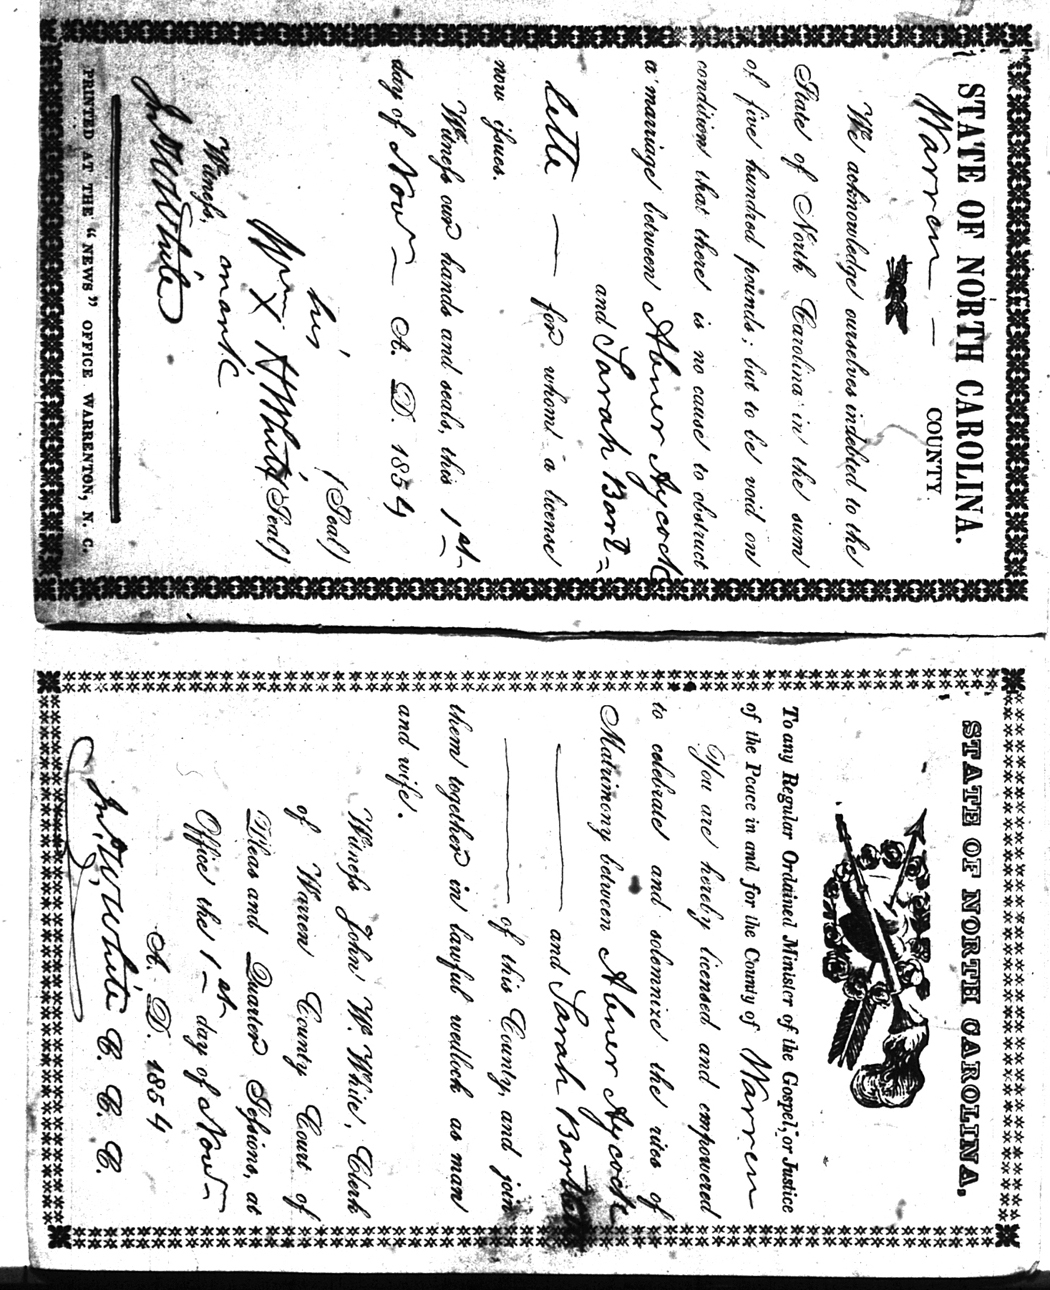 STATE OF NORTH CAROLINA.
Warren — COUNTY
We acknowledge ourselves indebted to the
State of North Carolina in the sum
of five hundred pounds; but to be void on
condition that there is no cause to obstruct
a marriage between Abner Aycock
and Sarah Bart=
lette — for whom a license
now issues.
Witness our hands and seals, this 1st
day of Novr A. D. 1854
(Seal)
his
Wm X H White (Seal)
mark
Witness,
Jno W White
PRINTED AT THE "NEWS" OFFICE WARRENTON, N. C.
STATE OF NORTH CAROLINA,
To any Regular Ordained Minister of the Gospel, or Justice
of the Peace in and for the County of Warren
You are hereby licensed and empowered
to celebrate and solemnize the rites of
Matrimony between Abner Aycock
— and Sarah Bartlette
— of this County, and join
them together in lawful wedlock as man
and wife.
Witness John W. White, Clerk
of Warren County Court of
Pleas and Quarter Sessions, at
Office the 1st day of Novr
A. D. 1854
Jno. W White C. C. C.